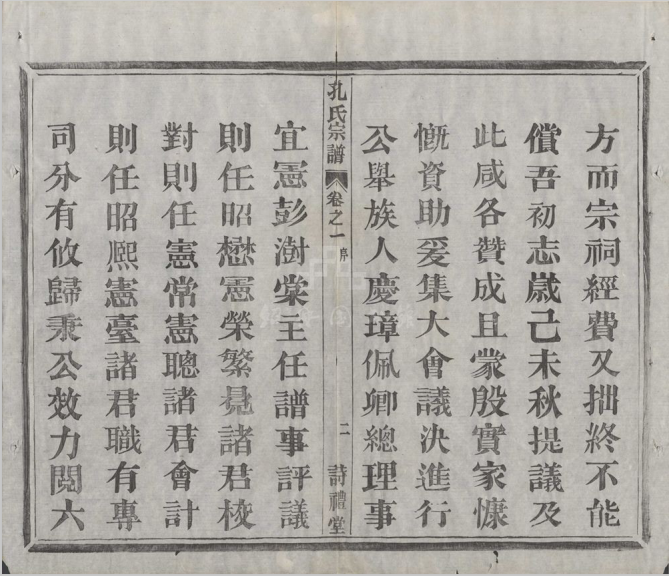 方而宗祠經費又拙終不能
償吾初志歲己未秋提議及
此咸各贊成且蒙殷實家慷
慨資助爰集大會議決進行
公舉族人慶璋佩卿總理事
孔氏宗譜 卷之一 序 二 詩禮堂
宜憲彭澍棠主任譜事評議
則任昭懋憲榮繁堯諸君校
對則任憲常憲聰諸君會計
則任昭熙憲臺諸君職有專
司分有攸歸秉公效力閱六